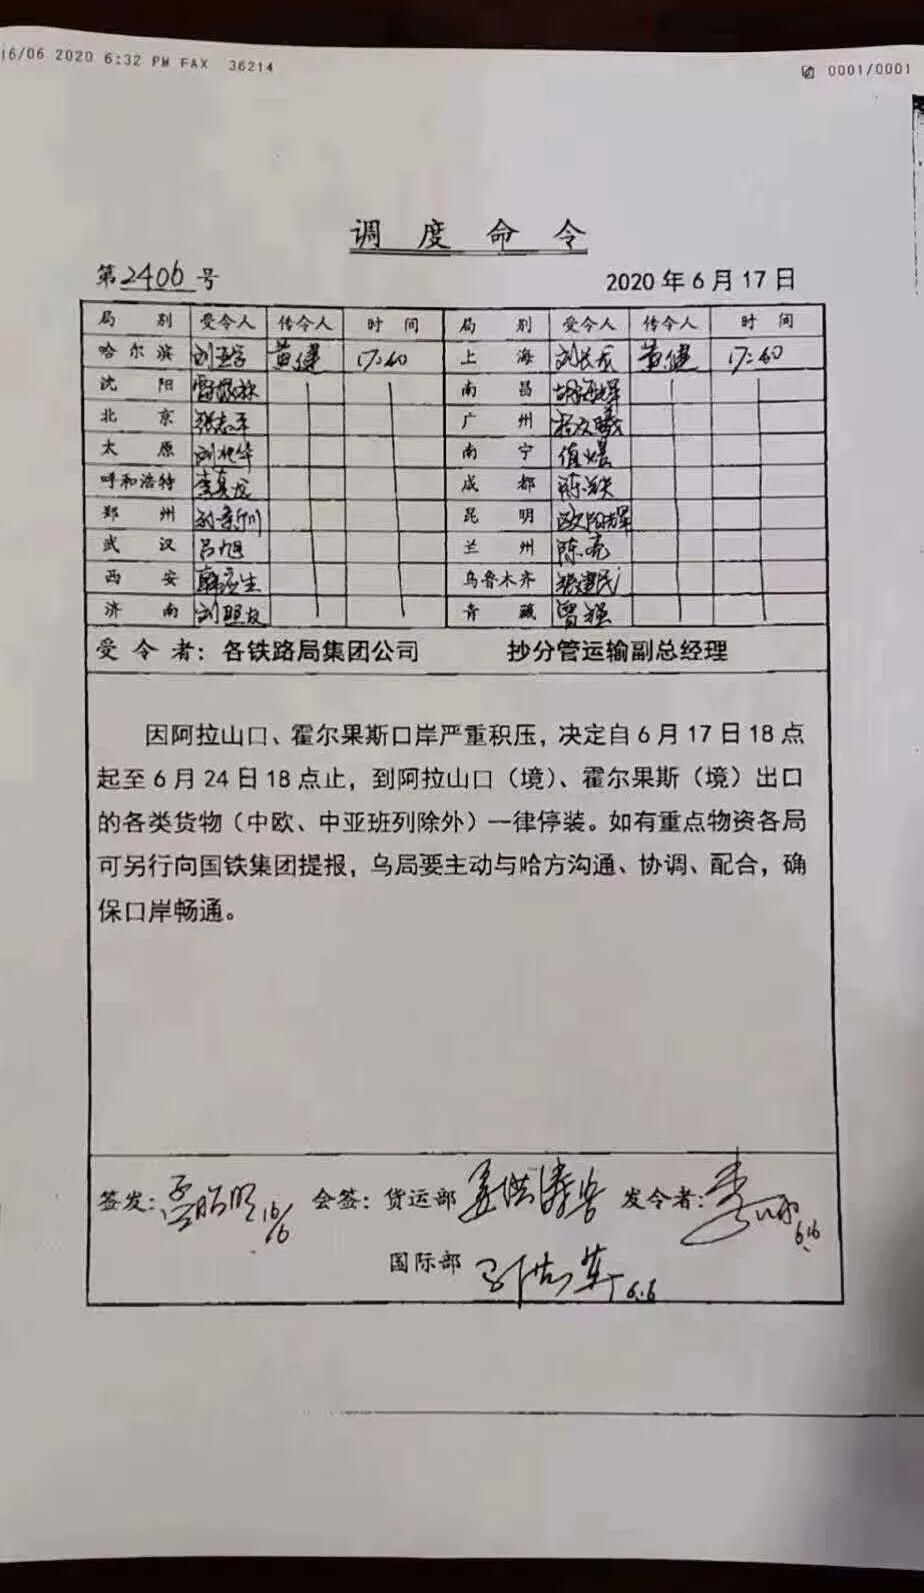 16/06 2020 6:32 PM FAX 36214
0001/0001
调度命令
第2406号
2020年6月17日
局别 受令人 传令人 时间 局别 受令人 传令人 时间
哈尔滨 黄健 17:40 上海 黄健 17:40
沈阳 南昌
北京 张志军 广州
太原 南宁
呼和浩特 成都
郑州 昆明 欧阳辉
武汉 吕旭 兰州 陈亮
西安 乌鲁木齐 张建民
济南 青藏 曾强
受令者：各铁路局集团公司 抄分管运输副总经理
因阿拉山口、霍尔果斯口岸严重积压，决定自6月17日18点
起至6月24日18点止，到阿拉山口（境）、霍尔果斯（境）出口
的各类货物（中欧、中亚班列除外）一律停装。如有重点物资各局
可另行向国铁集团提报，乌局要主动与哈方沟通、协调、配合，确
保口岸畅通。
签发： 16/6 会签：货运部 发令者： 6.16
国际部 6.6